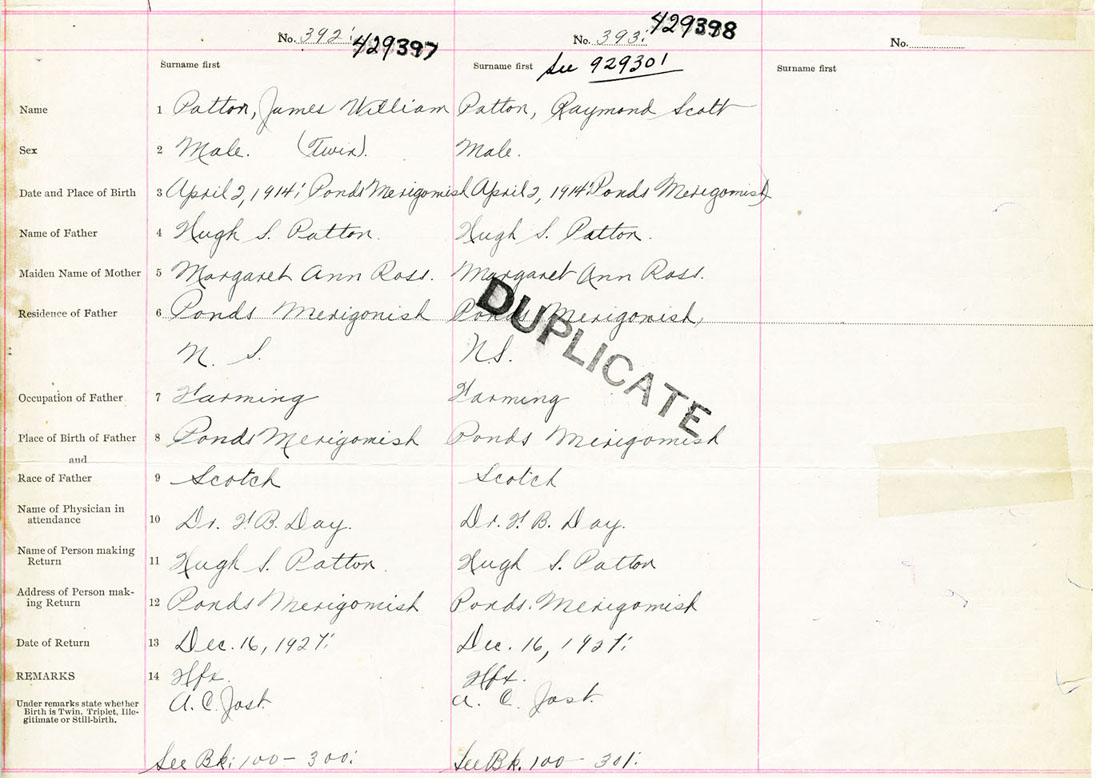 No. 392 429397 No. 393 429398 No.
Surname first Surname first See 929301 Surname first
Name 1 Patton, James William Patton, Raymond Scott
Sex 2 Male. (Twin). Male.
Date and Place of Birth 3 April 2, 1914: Ponds Merigomish April 2, 1914: Ponds Merigomish
Name of Father 4 Hugh S. Patton. Hugh S. Patton.
Maiden Name of Mother 5 Margaret Ann Ross. Margaret Ann Ross.
Residence of Father 6 Ponds Merigonish Ponds Merigonish,
N. S. NS.
DUPLICATE
Occupation of Father 7 Farming Farming
Place of Birth of Father 8 Ponds Merigomish Ponds Merigomish
and
Race of Father 9 Scotch Scotch
Name of Physician in
attendance 10 Dr. F. B. Day. Dr. F. B. Day.
Name of Person making
Return 11 Hugh S. Patton. Hugh S. Patton
Address of Person mak-
ing Return 12 Ponds Merigomish Ponds. Merigomish
Date of Return 13 Dec. 16, 1927: Dec. 16, 1927:
REMARKS 14 Hfx. Hfx.
Under remarks state whether
Birth is Twin, Triplet, Ille-
gitimate or Still-birth.
A. C. Jost. A. C. Jost.
See Bk: 100 - 300: See Bk. 100 - 301: